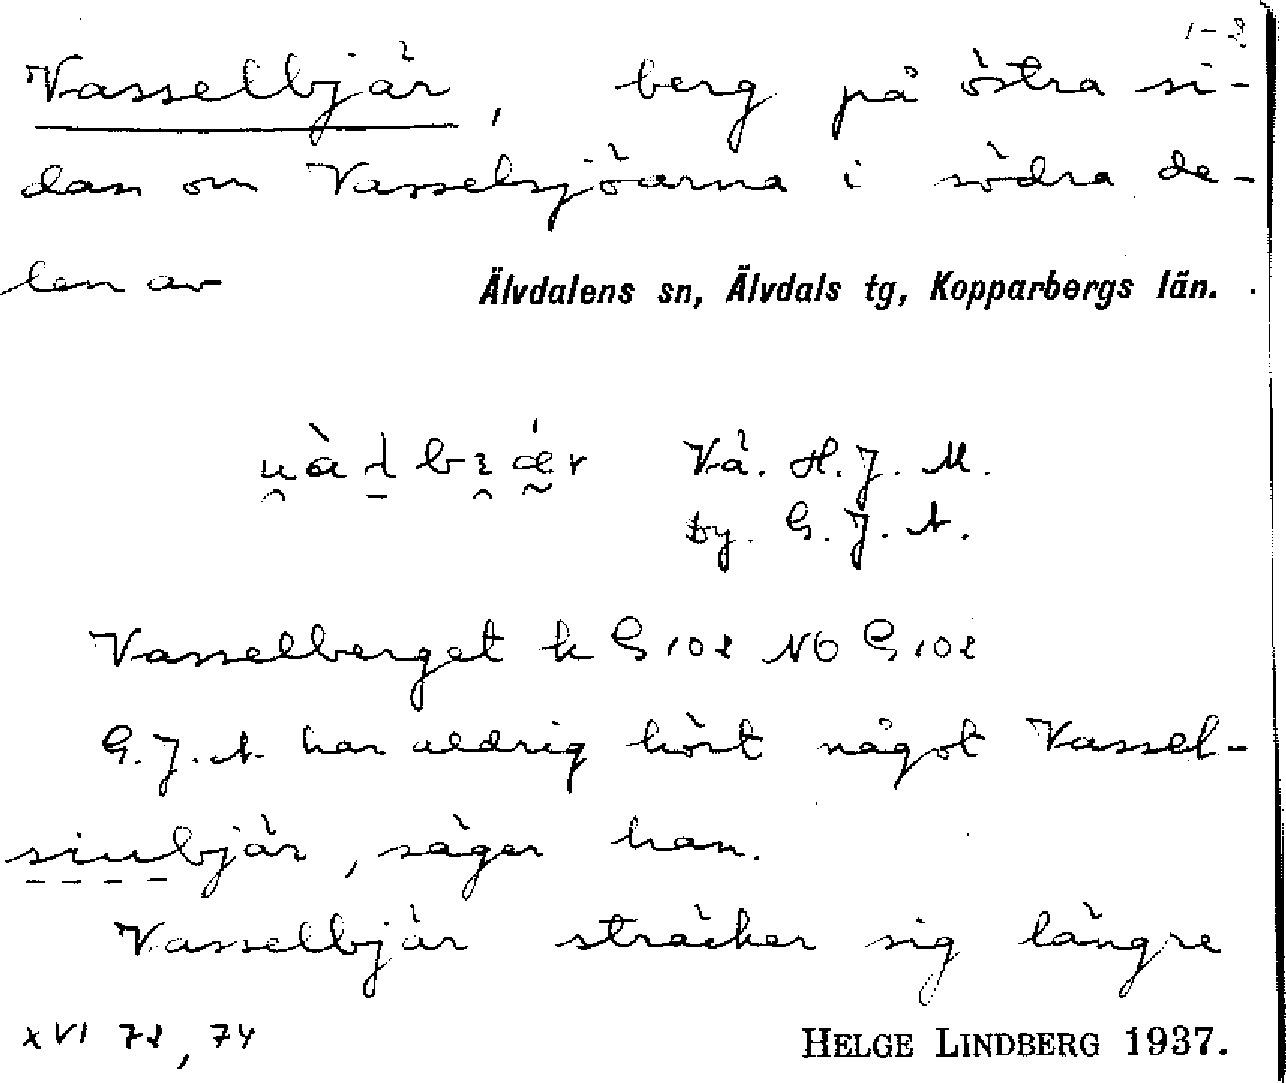 1-2
Vasselbjär, berg på östra si-
dan om Vasselsjöarna i södra de-
len av Älvdalens sn, Älvdals tg, Kopparbergs län.
Vå. H. J. M.
by. G. J. A.
Vasselberget k G 102 NO G 102
G. J. A. har aldrig hört något Vassel-
siubjär, säger han.
Vasselbjär sträcker sig längre
XVI 72, 74 HELGE LINDBERG 1937.